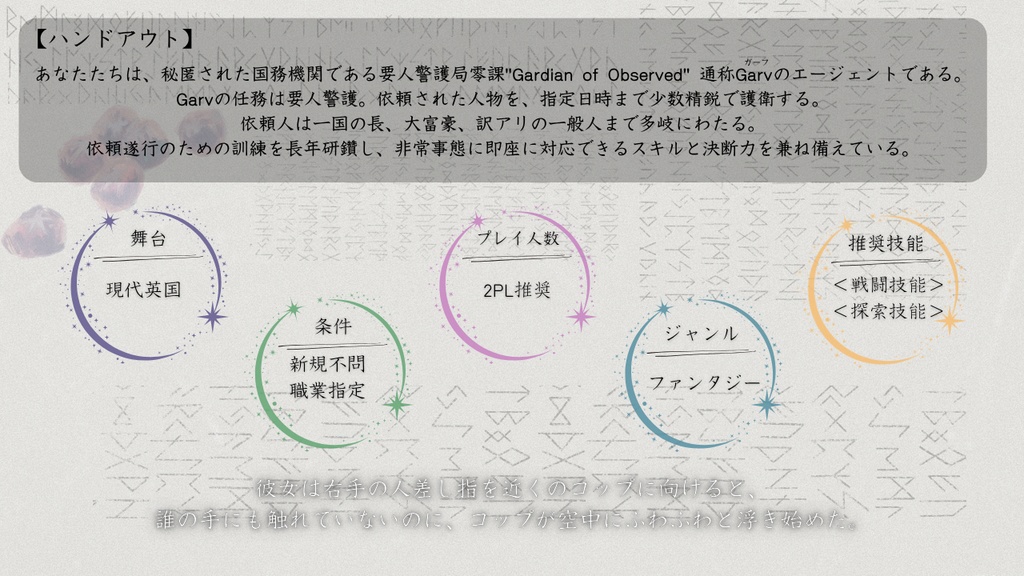 【ハンドアウト】
ガーブ
あなたたちは、秘匿された国務機関である要人警護局零課"Gardian of Observed" 通称Garvのエージェントである。
Garvの任務は要人警護。依頼された人物を、指定日時まで少数精鋭で護衛する。
依頼人は一国の長、大富豪、訳アリの一般人まで多岐にわたる。
依頼遂行のための訓練を長年研鑽し、非常事態に即座に対応できるスキルと決断力を兼ね備えている。
舞台
現代英国
条件
新規不問
職業指定
プレイ人数
2PL推奨
ジャンル
ファンタジー
推奨技能
＜戦闘技能＞
＜探索技能＞
彼女は右手の人差し指を近くのコップに向けると、
誰の手にも触れていないのに、コップが空中にふわふわと浮き始めた。